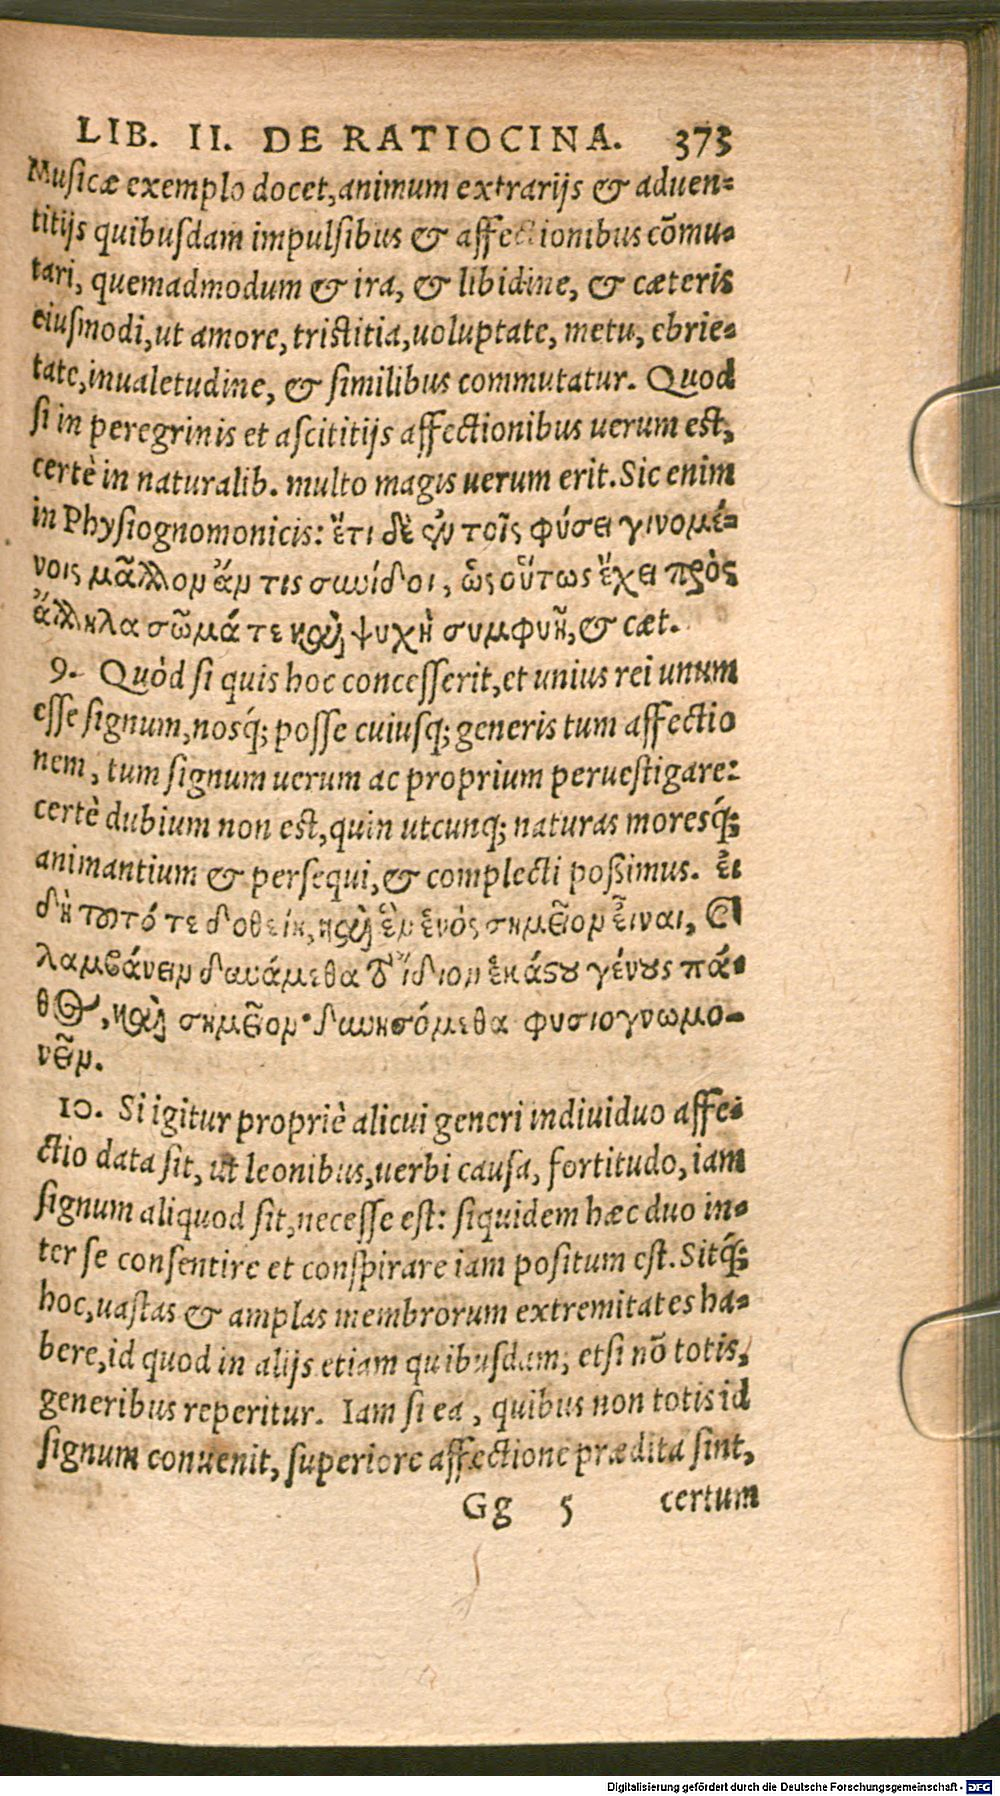 LIB. II. DE RATIOCINA. 373
Musicæ exemplo docet, animum extrarijs & aduen-
titijs quibusdam impulsibus & affectionibus cõmu-
tari, quemadmodum & ira, & libidine, & cæteris
eiusmodi, ut amore, tristitia, uoluptate, metu, ebrie-
tate, inualetudine, & similibus commutatur. Quod
si in peregrinis et ascititijs affectionibus uerum est,
certè in naturalib. multo magis uerum erit. Sic enim
in Physiognomonicis: ἔτι δὲ ἐν τοῖς φύσει γινομέ-
νοις μᾶλλον ἄν τις συνίδοι, ὡς οὕτως ἔχει πρὸς
ἄλληλα σῶμά τε καὶ ψυχὴ συμφυῆ, & cæt.
9. Quòd si quis hoc concesserit, et unius rei unum
esse signum, nosq́; posse cuiusq́; generis tum affectio
nem, tum signum uerum ac proprium peruestigare:
certè dubium non est, quin utcunq; naturas moresq́;
animantium & persequi, & complecti poßimus. εἰ
δὴ τοῦτό τε δοθείη, καὶ ἓν ἑνὸς σημεῖον εἶναι, καὶ
λαμβάνειν δυνάμεθα τὸ ἴδιον ἑκάστου γένους πά-
θος, καὶ σημεῖον· δυνησόμεθα φυσιογνωμο-
νεῖν.
10. Si igitur propriè alicui generi indiuiduo affe-
ctio data sit, ut leonibus, uerbi causa, fortitudo, iam
signum aliquod sit, necesse est: siquidem hæc duo in-
ter se consentire et conspirare iam positum est. Sitq́;
hoc, uastas & amplas membrorum extremitates ha-
bere, id quod in alijs etiam quibusdam, etsi nõ totis,
generibus reperitur. Iam si ea, quibus non totis id
signum conuenit, superiore affectione prædita sint,
Gg 5 certum
Digitalisierung gefördert durch die Deutsche Forschungsgemeinschaft - DFG